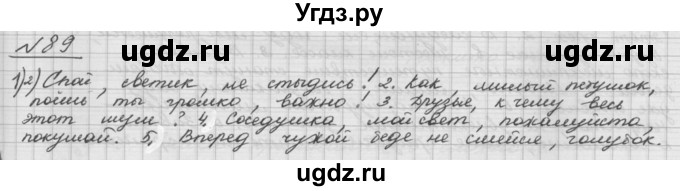 Угдз.ру
№ 89
1)2) Спой, светик, не стыдись! 2. Как, милый петушок,
поёшь ты громко, важно! 3. Друзья, к чему весь
этот шум? 4. Соседушка, мой свет, пожалуйста,
покушай. 5. Вперед чужой беде не смейся, голубок.
ugdz.ru ugdz.ru ugdz.ru
ugdz.ru ugdz.ru ugdz.ru